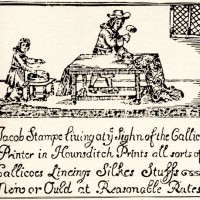 Jacob Stampe living at yᵉ Sighn of the Callico
Printer in Hounsditch Prints all sorts of
Callicoes Lineings Silkes Stuffs
New or Ould at Reasonable Rates